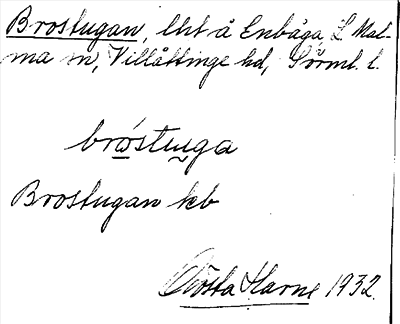 Brostugan, lht å Enbåga, L Mal-
ma sn, Villåttinge hd, Sörml. l.
bro̱stu̱ga
Brostugan kb
Gösta Harne 1932.